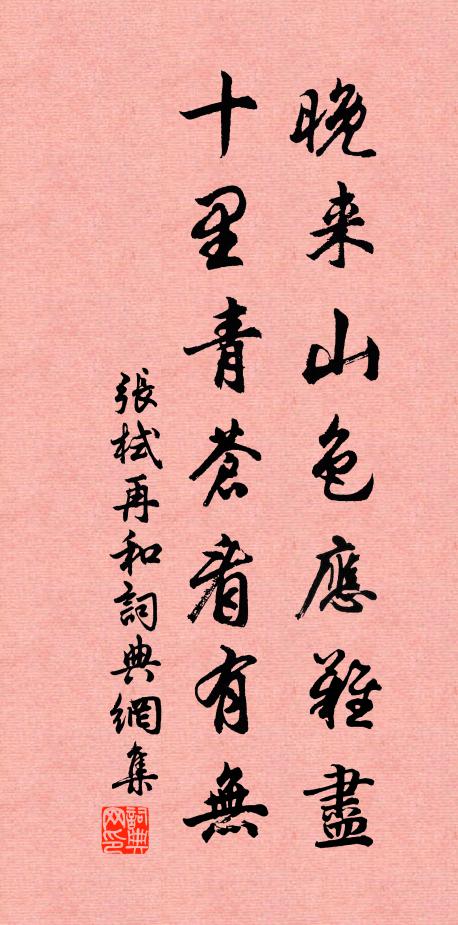 晚来山色應難盡
十里青蒼看有無
張栻再和詞典網集
詞典网印